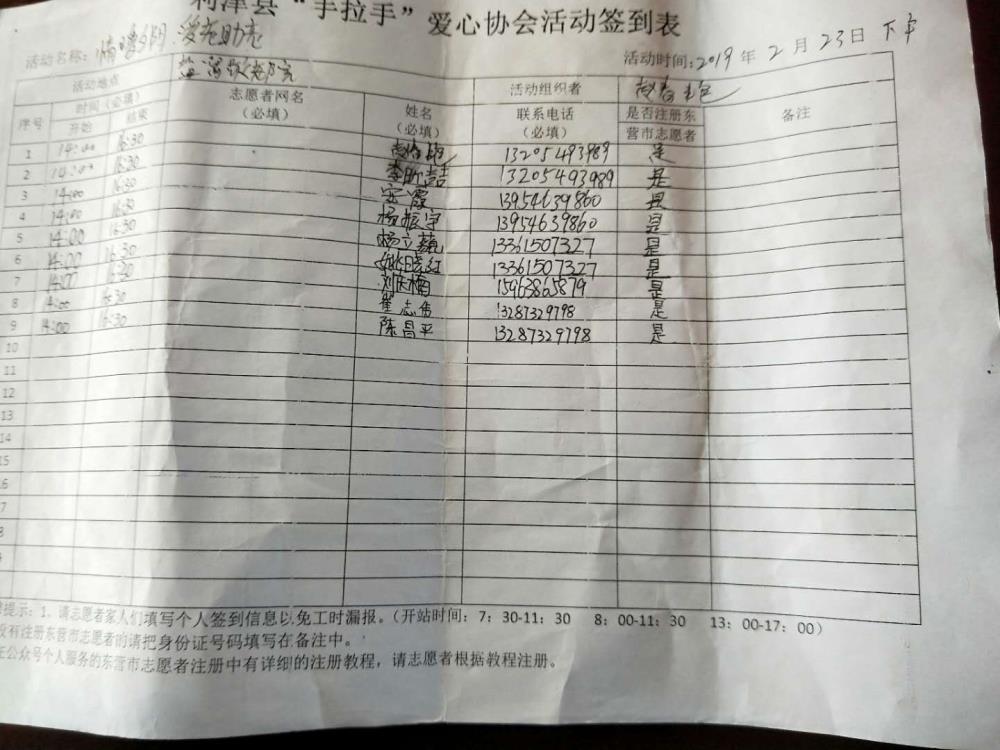 利津县“手拉手”爱心协会活动签到表
活动名称：情暖夕阳 爱老助老 活动时间：2019年2月23日下午
活动地点 活动组织者
序号 时间（必填） 志愿者网名（必填） 姓名（必填） 联系电话（必填） 是否注册东营市志愿者 备注
开始 结束
1 14:00 16:30 13205493989 是
2 14:00 16:30 李昕喆 13205493989 是
3 14:00 16:30 宋霞 13954639860 是
4 14:00 16:30 杨振宇 13954639860 是
5 14:00 16:30 杨立 13361507327 是
6 14:00 16:30 姚晓红 13361507327 是
7 14:00 16:30 刘庆楠 15963865879 是
8 14:00 16:30 崔志伟 13287329798 是
9 14:00 16:30 陈昌平 13287329798 是
10
11
12
13
14
15
提示：1、请志愿者家人们填写个人签到信息以免工时漏报。（开站时间：7：30-11：30 8：00-11：30 13：00-17：00）
没有注册东营市志愿者的请把身份证号码填写在备注中。
在公众号个人服务的东营市志愿者注册中有详细的注册教程，请志愿者根据教程注册。